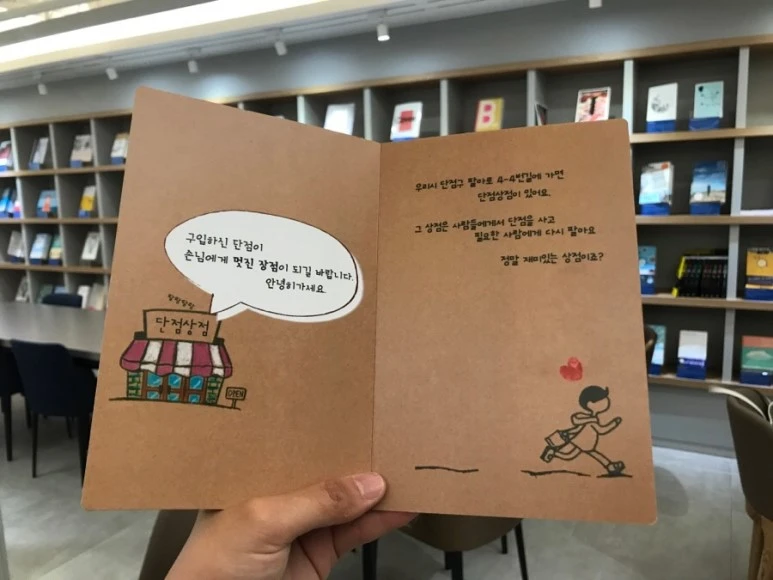 구입하신 단점이
손님에게 멋진 장점이 되길 바랍니다.
안녕히가세요
단점상점
OPEN
우리시 단점구 팔아로 4-4번길에 가면
단점상점이 있어요.
그 상점은 사람들에게서 단점을 사고
필요한 사람에게 다시 팔아요
정말 재미있는 상점이죠?